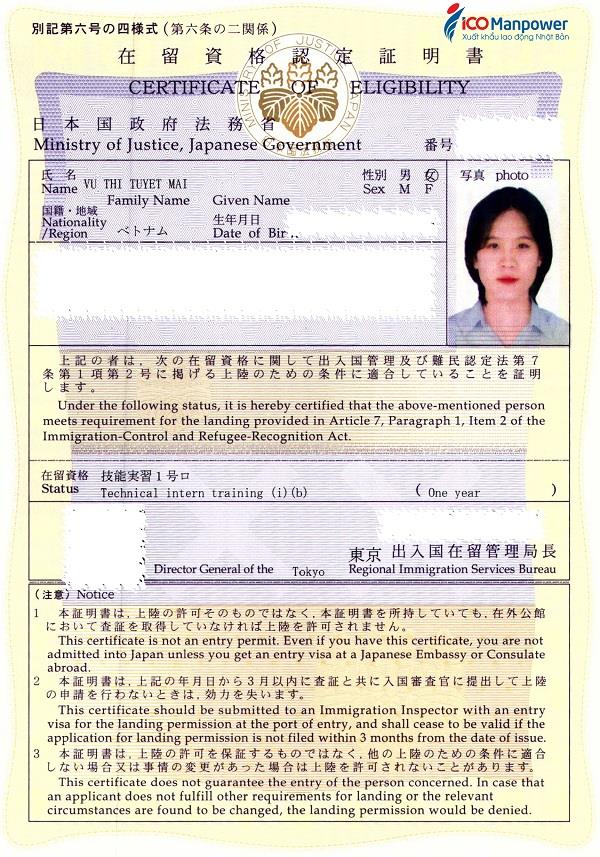 別記第六号の四様式（第六条の二関係）
iCO Manpower
Xuất khẩu lao động Nhật Bản
在留資格認定証明書
MINISTRY OF JUSTICE JAPAN
CERTIFICATE OF ELIGIBILITY
日本国政府法務省
Ministry of Justice, Japanese Government
番号
氏名
Name VU THI TUYET MAI
Family Name Given Name
性別 男 女
Sex M F
写真 photo
国籍・地域
Nationality
/Region ベトナム
生年月日
Date of Bir
上記の者は，次の在留資格に関して出入国管理及び難民認定法第７
条第１項第２号に掲げる上陸のための条件に適合していることを証明
します。
Under the following status, it is hereby certified that the above-mentioned person
meets requirement for the landing provided in Article 7, Paragraph 1, Item 2 of the
Immigration-Control and Refugee-Recognition Act.
在留資格 技能実習１号ロ
Status Technical intern training (i)(b) ( One year )
東京 出入国在留管理局長
Director General of the Tokyo Regional Immigration Services Bureau
（注意）Notice
1 本証明書は，上陸の許可そのものではなく，本証明書を所持していても，在外公館
において査証を取得していなければ上陸を許可されません。
This certificate is not an entry permit. Even if you have this certificate, you are not
admitted into Japan unless you get an entry visa at a Japanese Embassy or Consulate
abroad.
2 本証明書は，上記の年月日から３月以内に査証と共に入国審査官に提出して上陸
の申請を行わないときは，効力を失います。
This certificate should be submitted to an Immigration Inspector with an entry
visa for the landing permission at the port of entry, and shall cease to be valid if the
application for landing permission is not filed within 3 months from the date of issue.
3 本証明書は，上陸の許可を保証するものではなく，他の上陸のための条件に適合
しない場合又は事情の変更があった場合は上陸を許可されないことがあります。
This certificate does not guarantee the entry of the person concerned. In case that
an applicant does not fulfill other requirements for landing or the relevant
circumstances are found to be changed, the landing permission would be denied.